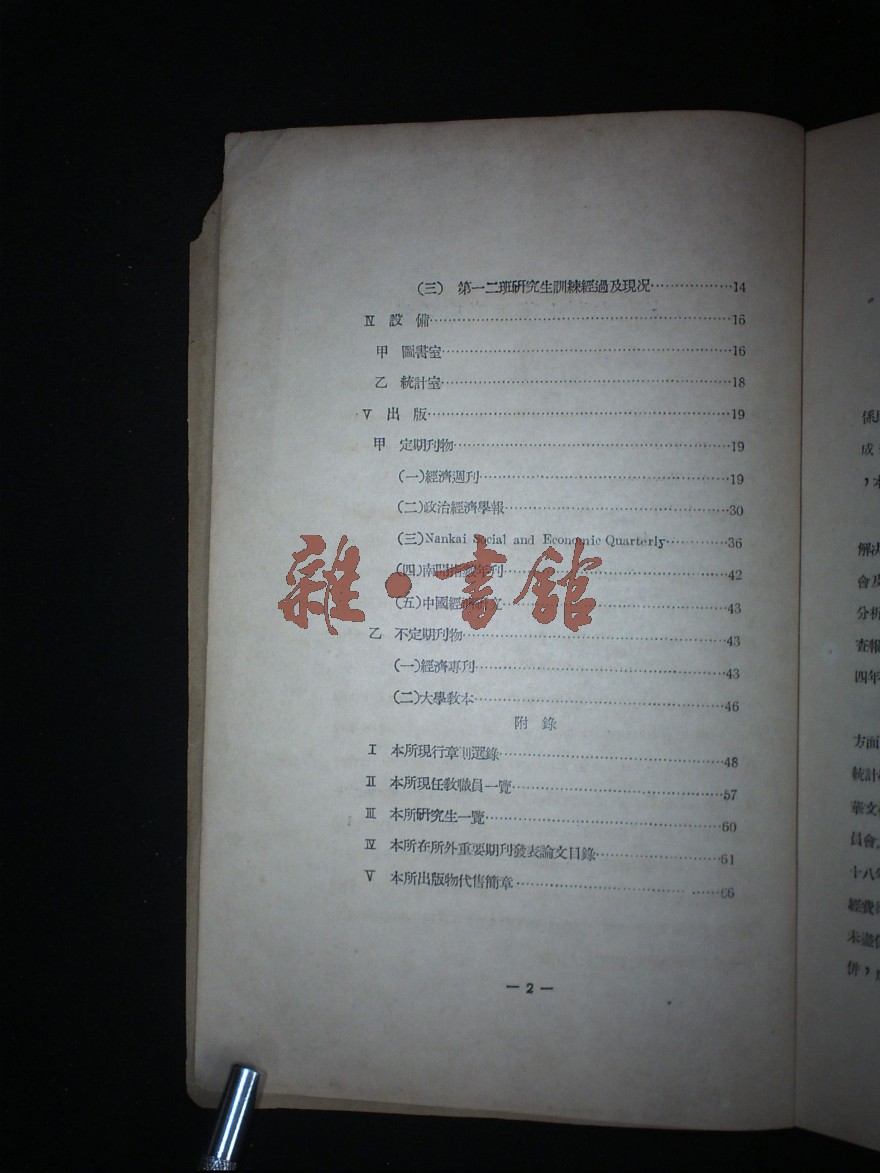 (三) 第一二班研究生訓練經過及現况………………14
Ⅳ 設 備………………16
甲 圖書室………………16
乙 統計室………………18
Ⅴ 出 版………………19
甲 定期刊物………………19
(一)經濟週刊………………19
(二)政治經濟學報………………30
(三)Nankai Social and Economic Quarterly………………36
(四)南開指數年刊………………42
(五)中國經濟研究………………43
乙 不定期刊物………………43
(一)經濟專刊………………43
(二)大學敎本………………46
附 錄
Ⅰ 本所現行章則選錄………………48
Ⅱ 本所現任敎職員一覽………………57
Ⅲ 本所研究生一覽………………60
Ⅳ 本所在所外重要期刊發表論文目錄………………61
Ⅴ 本所出版物代售簡章………………66
— 2 —
雜·書館
係
成
,本
解决
會及
分析
查報
四年
方面
統計
華文
員會
十八年
經費
未盡
併,